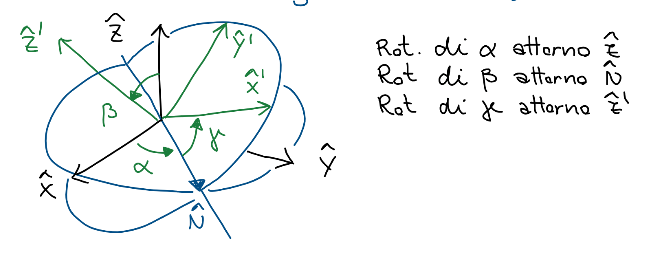 ẑ'
ẑ
ŷ'
x̂'
β
γ
α
ŷ
x̂
N̂
Rot. di α attorno ẑ
Rot di β attorno N̂
Rot di γ attorno ẑ'